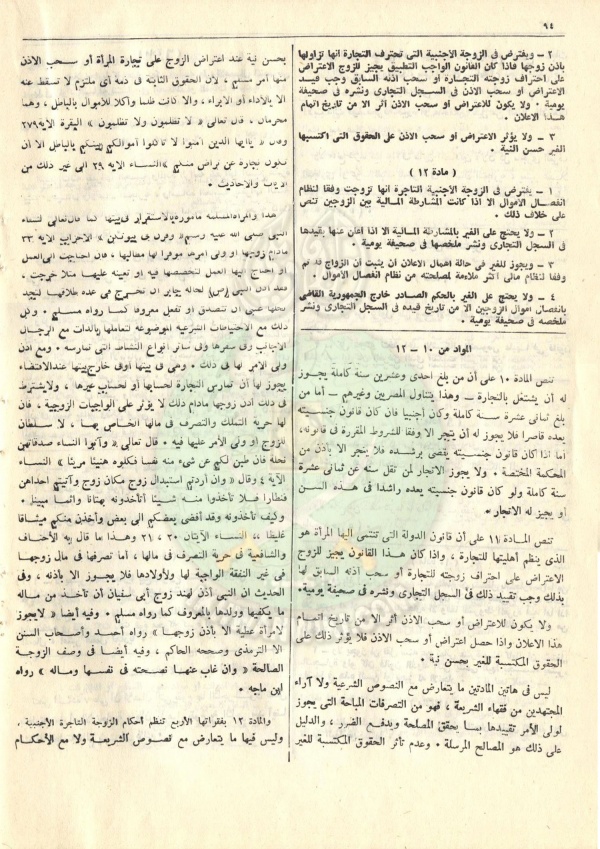 ٩٤
٢ – ويفترض في الزوجة الأجنبية التي تحترف التجارة انها تزاولها
بإذن زوجها فإذا كان القانون الواجب التطبيق يجيز للزوج الاعتراض
على احتراف زوجته التجارة أو سحب اذنه السابق وجب قيد
الاعتراض أو سحب الاذن في السجل التجاري ونشره في صحيفة
يومية ٠ ولا يكون للاعتراض أو سحب الاذن أثر الا من تاريخ اتمام
هذا الاعلان ٠
٣ – ولا يؤثر الاعتراض أو سحب الاذن على الحقوق التي اكتسبها
الغير حسن النية ٠
( مادة ١٢ )
١ – يفترض في الزوجة الأجنبية التاجرة انها تزوجت وفقا لنظام
انفصال الأموال الا اذا كانت المشارطة المالية بين الزوجين تنص
على خلاف ذلك ٠
٢ – ولا يحتج على الغير بالمشارطة المالية الا اذا أعلن عنها بقيدها
في السجل التجاري ونشر ملخصها في صحيفة يومية ٠
٣ – ويجوز للغير في حالة اهمال الاعلان أن يثبت أن الزواج قد تم
وفقا لنظام مالي أكثر ملاءمة لمصلحته من نظام انفصال الأموال ٠
٤ – ولا يحتج على الغير بالحكم الصادر خارج الجمهورية القاضي
بانفصال أموال الزوجين الا من تاريخ قيده في السجل التجاري ونشر
ملخصه في صحيفة يومية ٠
المواد من ١٠ – ١٢
تنص المادة ١٠ على أن من بلغ احدى وعشرين سنة كاملة يجوز
له أن يشتغل بالتجارة – وهذا يتناول المصريين وغيرهم – أما من
بلغ ثماني عشرة سنة كاملة وكان أجنبيا فان كان قانون جنسيته
يعده قاصرا فلا يجوز له أن يتجر الا وفقا للشروط المقررة في قانونه،
أما اذا كان قانون جنسيته يقضي برشده فلا يتجر الا باذن من
المحكمة المختصة ٠ ولا يجوز الاتجار لمن تقل سنه عن ثماني عشرة
سنة كاملة ولو كان قانون جنسيته يعده راشدا في هذا السن
أو يجيز له الاتجار »
تنص المادة ١١ على أن قانون الدولة التي تنتمي اليها المرأة هو
الذي ينظم أهليتها للتجارة ، واذا كان هذا القانون يجيز للزوج
الاعتراض على احتراف زوجته للتجارة أو سحب اذنه السابق لها
بذلك وجب تقييد ذلك في السجل التجاري ونشره في صحيفة يومية٠
ولا يكون للاعتراض أو سحب الاذن أثر الا من تاريخ اتمام
هذا الاعلان واذا حصل اعتراض أو سحب الاذن فلا يؤثر ذلك على
الحقوق المكتسبة للغير بحسن نية ٠
ليس في هاتين المادتين ما يتعارض مع النصوص الشرعية ولا آراء
المجتهدين من فقهاء الشريعة ، فهو من التصرفات المباحة التي يجوز
لولي الأمر تقييدها بما يحقق المصلحة ويدفع الضرر ، والدليل
على ذلك هو المصالح المرسلة ٠ وعدم تأثر الحقوق المكتسبة للغير
بحسن نية عند اعتراض الزوج على تجارة المرأة أو سحب الاذن
منها أمر مسلم ، لأن الحقوق الثابتة في ذمة أي ملتزم لا تسقط عنه
الا بالأداء أو الابراء ، والا كانت ظلما وأكلا للأموال بالباطل ، وهما
محرمان ، قال تعالى « لا تظلمون ولا تظلمون » البقرة الآية ٢٧٩
وقال « يا أيها الذين آمنوا لا تأكلوا أموالكم بينكم بالباطل الا أن
تكون تجارة عن تراض منكم » النساء الآية ٢٩ الى غير ذلك من
الآيات والأحاديث ٠
هذا والمرأة المسلمة مأمورة بالاستقرار في بيتها كما قال تعالى لنساء
النبي صلى الله عليه وسلم « وقرن في بيوتكن » الأحزاب الآية ٣٣
مادام زوجها أو ولي أمرها موفرا لها مطالبها ، فان احتاجت الى العمل
أو احتاج اليها العمل لتخصصها فيه أو تعينه عليها مثلا خرجت ،
فقد أذن النبي (ص) لخالة جابر أن تخرج في عدة طلاقها لتجد
نخلها عسى أن تتصدق أو تفعل معروفا كما رواه مسلم ٠ ولكن
ذلك مع الاحتياطات الشرعية الموضوعة لتعاملها بالذات مع الرجال
الأجانب وفي سفرها وفي سائر أنواع النشاط التي تمارسه ٠ ومع اذن
ولي الأمر لها في ذلك ٠ وهي في بيتها أو في خارج بيتها عند الاقتضاء
يجوز لها أن تمارس التجارة لحسابها أو لحساب غيرها ، ولا يشترط
في ذلك أذن زوجها مادام ذلك لا يؤثر على الواجبات الزوجية ، فان
لها حرية التملك والتصرف في مالها الخاص بها ، لا سلطان
للزوج أو ولي الأمر عليها فيه ٠ قال تعالى « وآتوا النساء صدقاتهن
نحلة فان طبن لكم عن شيء منه نفسا فكلوه هنيئا مريئا » النساء
الآية ٤ وقال « وان أردتم استبدال زوج مكان زوج وآتيتم احداهن
قنطارا فلا تأخذوا منه شيئا أتأخذونه بهتانا واثما مبينا ٠
وكيف تأخذونه وقد أفضى بعضكم الى بعض وأخذن منكم ميثاقا
غليظا » النساء الآيتان ٢٠ ، ٢١ وهذا ما قال به الأحناف
والشافعية في حرية التصرف في مالها ، أما تصرفها في مال زوجها
في غير النفقة الواجبة لها ولأولادها فلا يجوز الا باذنه ، وفي
الحديث ان النبي أذن لهند زوج أبي سفيان أن تأخذ من ماله
ما يكفيها وولدها بالمعروف كما رواه مسلم ٠ وفيه أيضا « لا يجوز
لامرأة عطية الا بأذن زوجها » رواه أحمد وأصحاب السنن
الا الترمذي وصححه الحاكم ، وفيه أيضا في وصف الزوجة
الصالحة « وان غاب عنها نصحته في نفسها وماله » رواه
ابن ماجه ٠
والمادة ١٢ بفقراتها الأربع تنظم أحكام الزوجة التاجرة الأجنبية ٠
وليس فيها ما يتعارض مع نصوص الشريعة ولا مع الأحكام